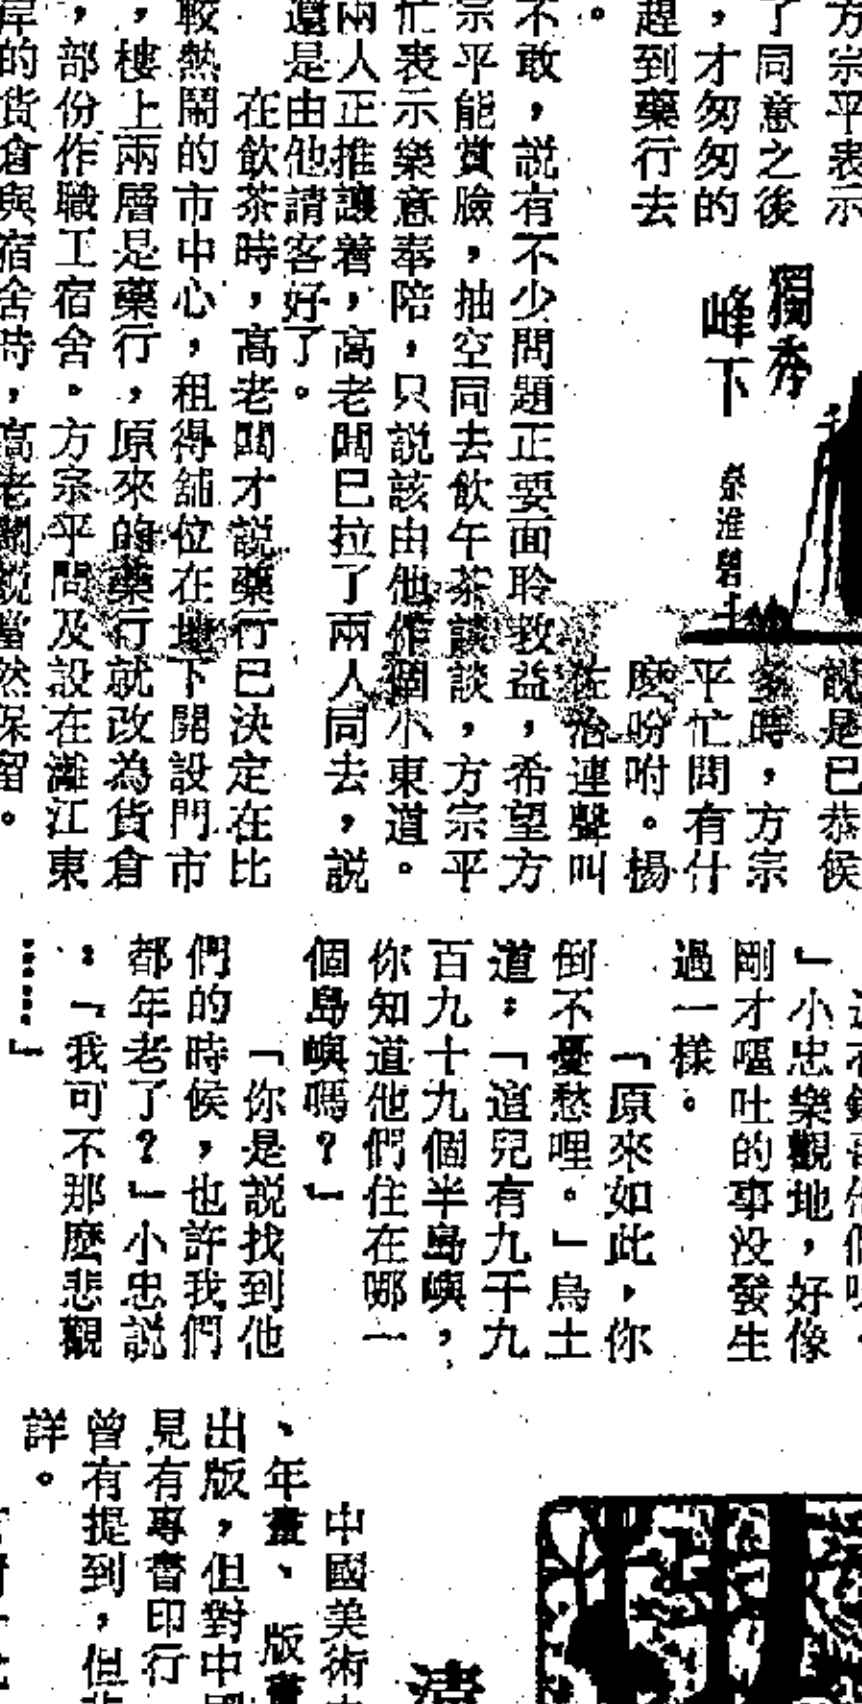 方宗平表示
了同意之後
，才匆匆的
趕到藥行去
。
獨秀
峰下
秦淮碧
說是已恭候
多時，方宗
平忙問有什
麽吩咐。楊
在治連聲叫
不敢，說有不少問題正要面聆教益，希望方
宗平能賞臉，抽空同去飲午茶談談，方宗平
忙表示樂意奉陪，只說該由他作個小東道。
兩人正推讓着，高老闆已拉了兩人同去，說
還是由他請客好了。
在飲茶時，高老闆才說藥行已決定在比
較熱鬧的市中心，租得舖位在地下開設門市
，樓上兩層是藥行，原來的藥行就改為貨倉
，部份作職工宿舍。方宗平問及設在灕江東
岸的貨倉與宿舍時，高老闆說當然保留。
」小忠樂觀地，好像
剛才嘔吐的事没發生
過一樣。
「原來如此，你
倒不憂愁哩。」烏土
道：「這兒有九千九
百九十九個半島嶼，
你知道他們住在哪一
個島嶼嗎？」
「你是説找到他
們的時候，也許我們
都年老了？」小忠説
：「我可不那麽悲觀
……」
清
中國美術
、年畫、版畫
出版，但對中國
見有專書印行
曾有提到，但
詳。